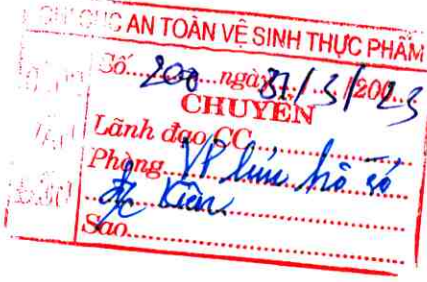 CHI CỤC AN TOÀN VỆ SINH THỰC PHẨM
Số... 200 ...ngày 31/3/200..23
CHUYỂN
Lãnh đạo CC..................
Phòng VP lưu hồ sơ
đ/c Kiên
Sao..............................